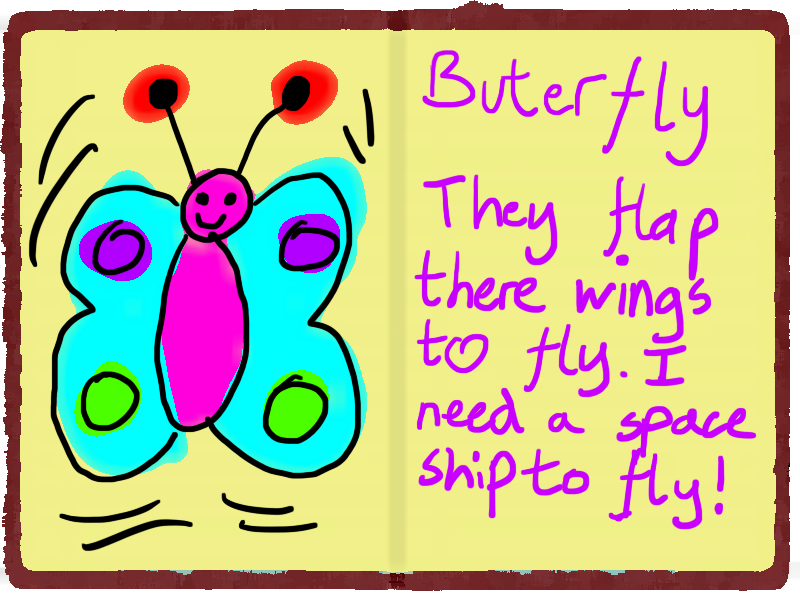 Buterfly
They flap
there wings
to fly. I
need a space
ship to fly!